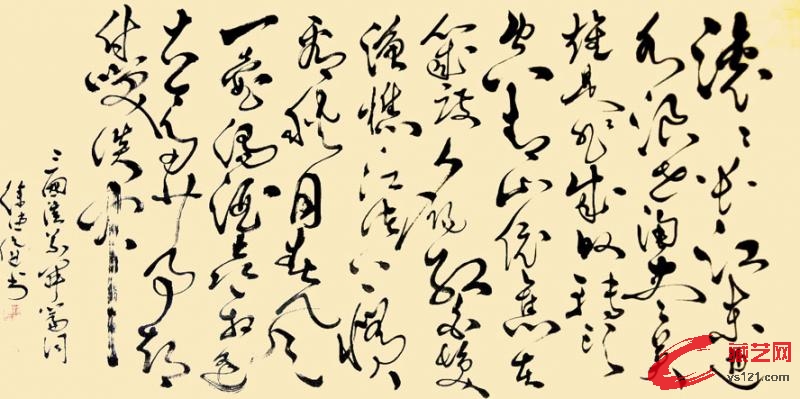 滚滚长江东逝
水浪花淘尽英
雄是非成败转头
空青山依旧在
几度夕阳红白发
渔樵江渚上惯
看秋月春风
一壶浊酒喜相逢
古今多少事都
付笑谈中
三国演义开篇词
书
艺网
ys121.com